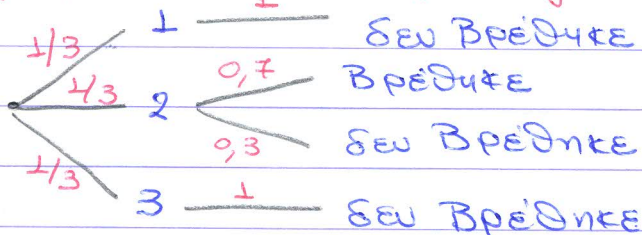 1/3 1 1 δεν βρέθηκε
1/3 2 0,7 βρέθηκε
0,3 δεν βρέθηκε
1/3 3 1 δεν βρέθηκε